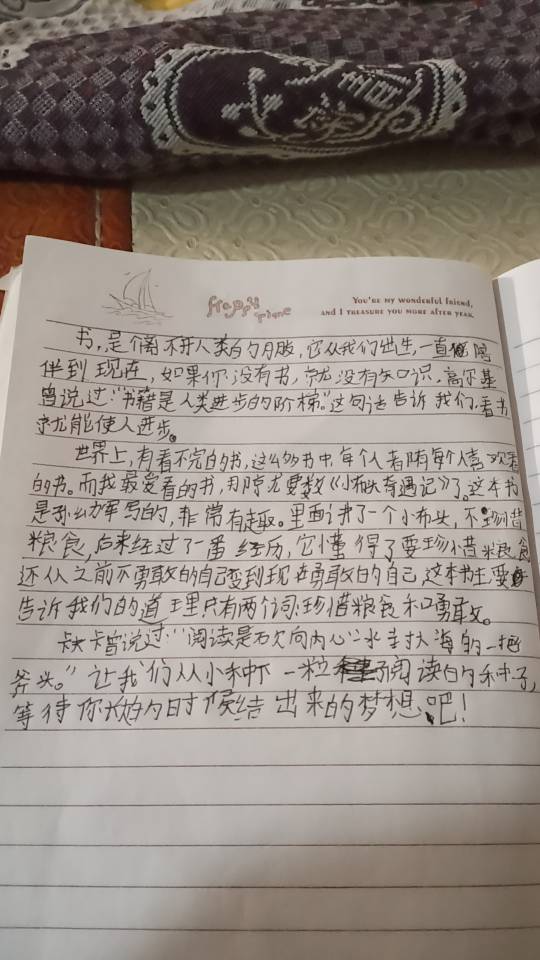 Happy time
You're my wonderful friend,
and I treasure you more after year.
书,是个离不开人类的朋友,它从我们出生,一直陪
伴到现在,如果你没有书,就没有知识,高尔基
曾说过:“书籍是人类进步的阶梯。”这句话告诉我们,看书
就能使人进步。
世界上,有看不完的书,这么多书中,每个人都有每个人喜欢看
的书。而我最爱看的书,那就要数《小布头奇遇记》了。这本书
是孙幼军写的,非常有趣。里面讲了一个小布头,不珍惜
粮食,后来经过了一番经历,它懂得了要珍惜粮食
还从之前不勇敢的自己变到现在勇敢的自己,这本书主要
告诉我们的道理只有两个词:珍惜粮食和勇敢。
卡夫卡曾说过:“阅读是砍向内心冰封大海的一把
斧头。”让我们从小种下一粒阅读的种子,
等待你长大的时候结出来的梦想吧!